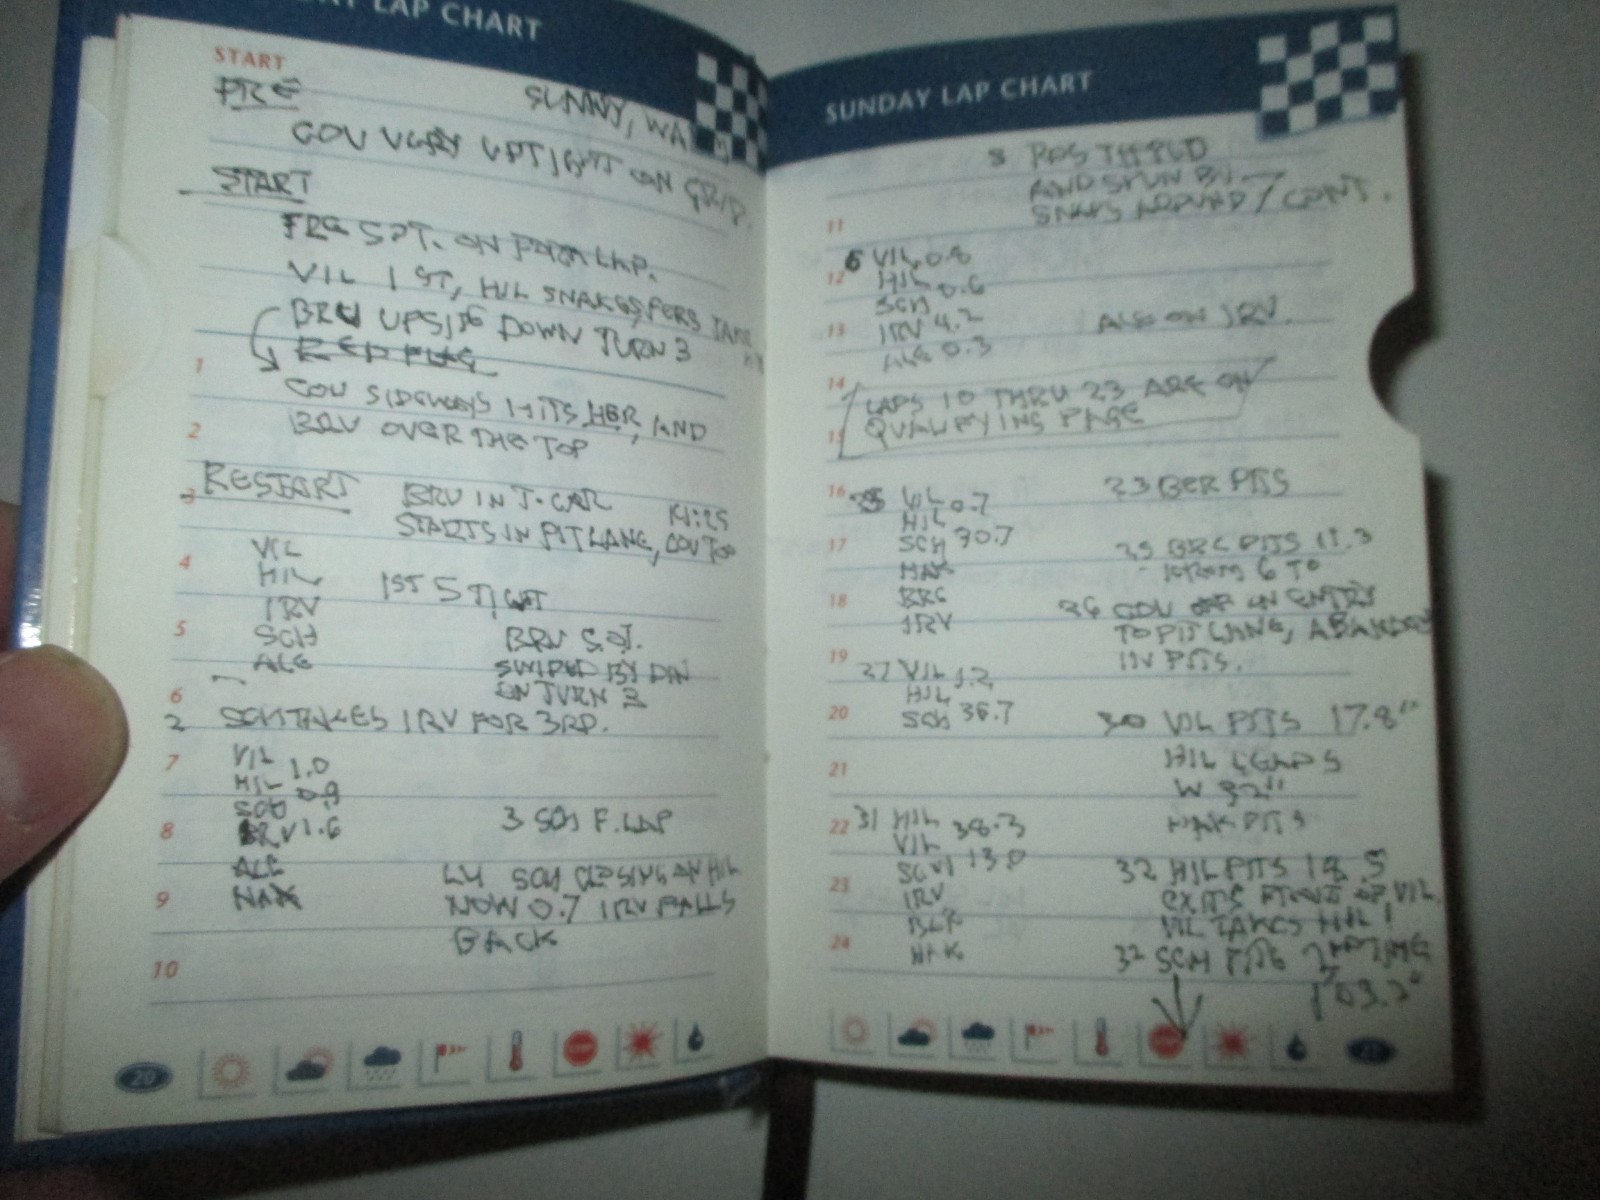 LAP CHART
START
PRE
SUNNY, WA
COU VERY UPTIGHT ON GRID.
START
FRE SPT. ON FORM LAP.
VIL 1 ST, HIL SNAKES, FERS TAKE
BRU UPSIDE DOWN TURN 3
RED FLAG
1
COU SIDEWAYS HITS HER, AND
2
BRU OVER THE TOP
RESTART
3
BRU IN T-CAR
14:25
STARTS IN PIT LANE, COU TOO
VIL
4
HIL
1ST 5 TIGHT
IRV
5
SCH
BRU S.O.
ALE
SWIPED BY DIN
6
ON TURN 2
2 SCH TAKES IRV FOR 3RD.
7
VIL
HIL 1.0
SCH 0.9
8
IRV 1.6
3 SCH F. LAP
ALE
L4 SCH CLOSING ON HIL
9
HAK
NOW 0.7 IRV FALLS
BACK
10
20
SUNDAY LAP CHART
AND SPUN BY
11
6 VIL 0.8
12
HIL 0.6
SCH
13
IRV 4.2
ALE ON IRV.
ALE 0.3
14
LAPS 10 THRU 23 ARE ON
15
QUALIFYING PAGE
16
25 VIL 0.7
23 BER PITS
HIL
17
SCH 30.7
25 BRC PITS 11.3
HAK
FROM 6 TO
18
BRC
26 COU OFF ON ENTRY
IRV
TO PIT LANE, ABANDONS
19
IN PITS.
27 VIL 1.2
HIL
20
SCH 38.7
30 VIL PITS 17.8"
21
HIL LEADS
W 32"
22
31 HIL 38.3
HAK PITS
VIL
SCH 13.0
32 HIL PITS 18.5
23
IRV
EXITS FRONT OF VIL
BER
VIL TAKES HIL!
24
HAK
32 SCH PITS 2ND TIME
1'03.2"
STOP
21